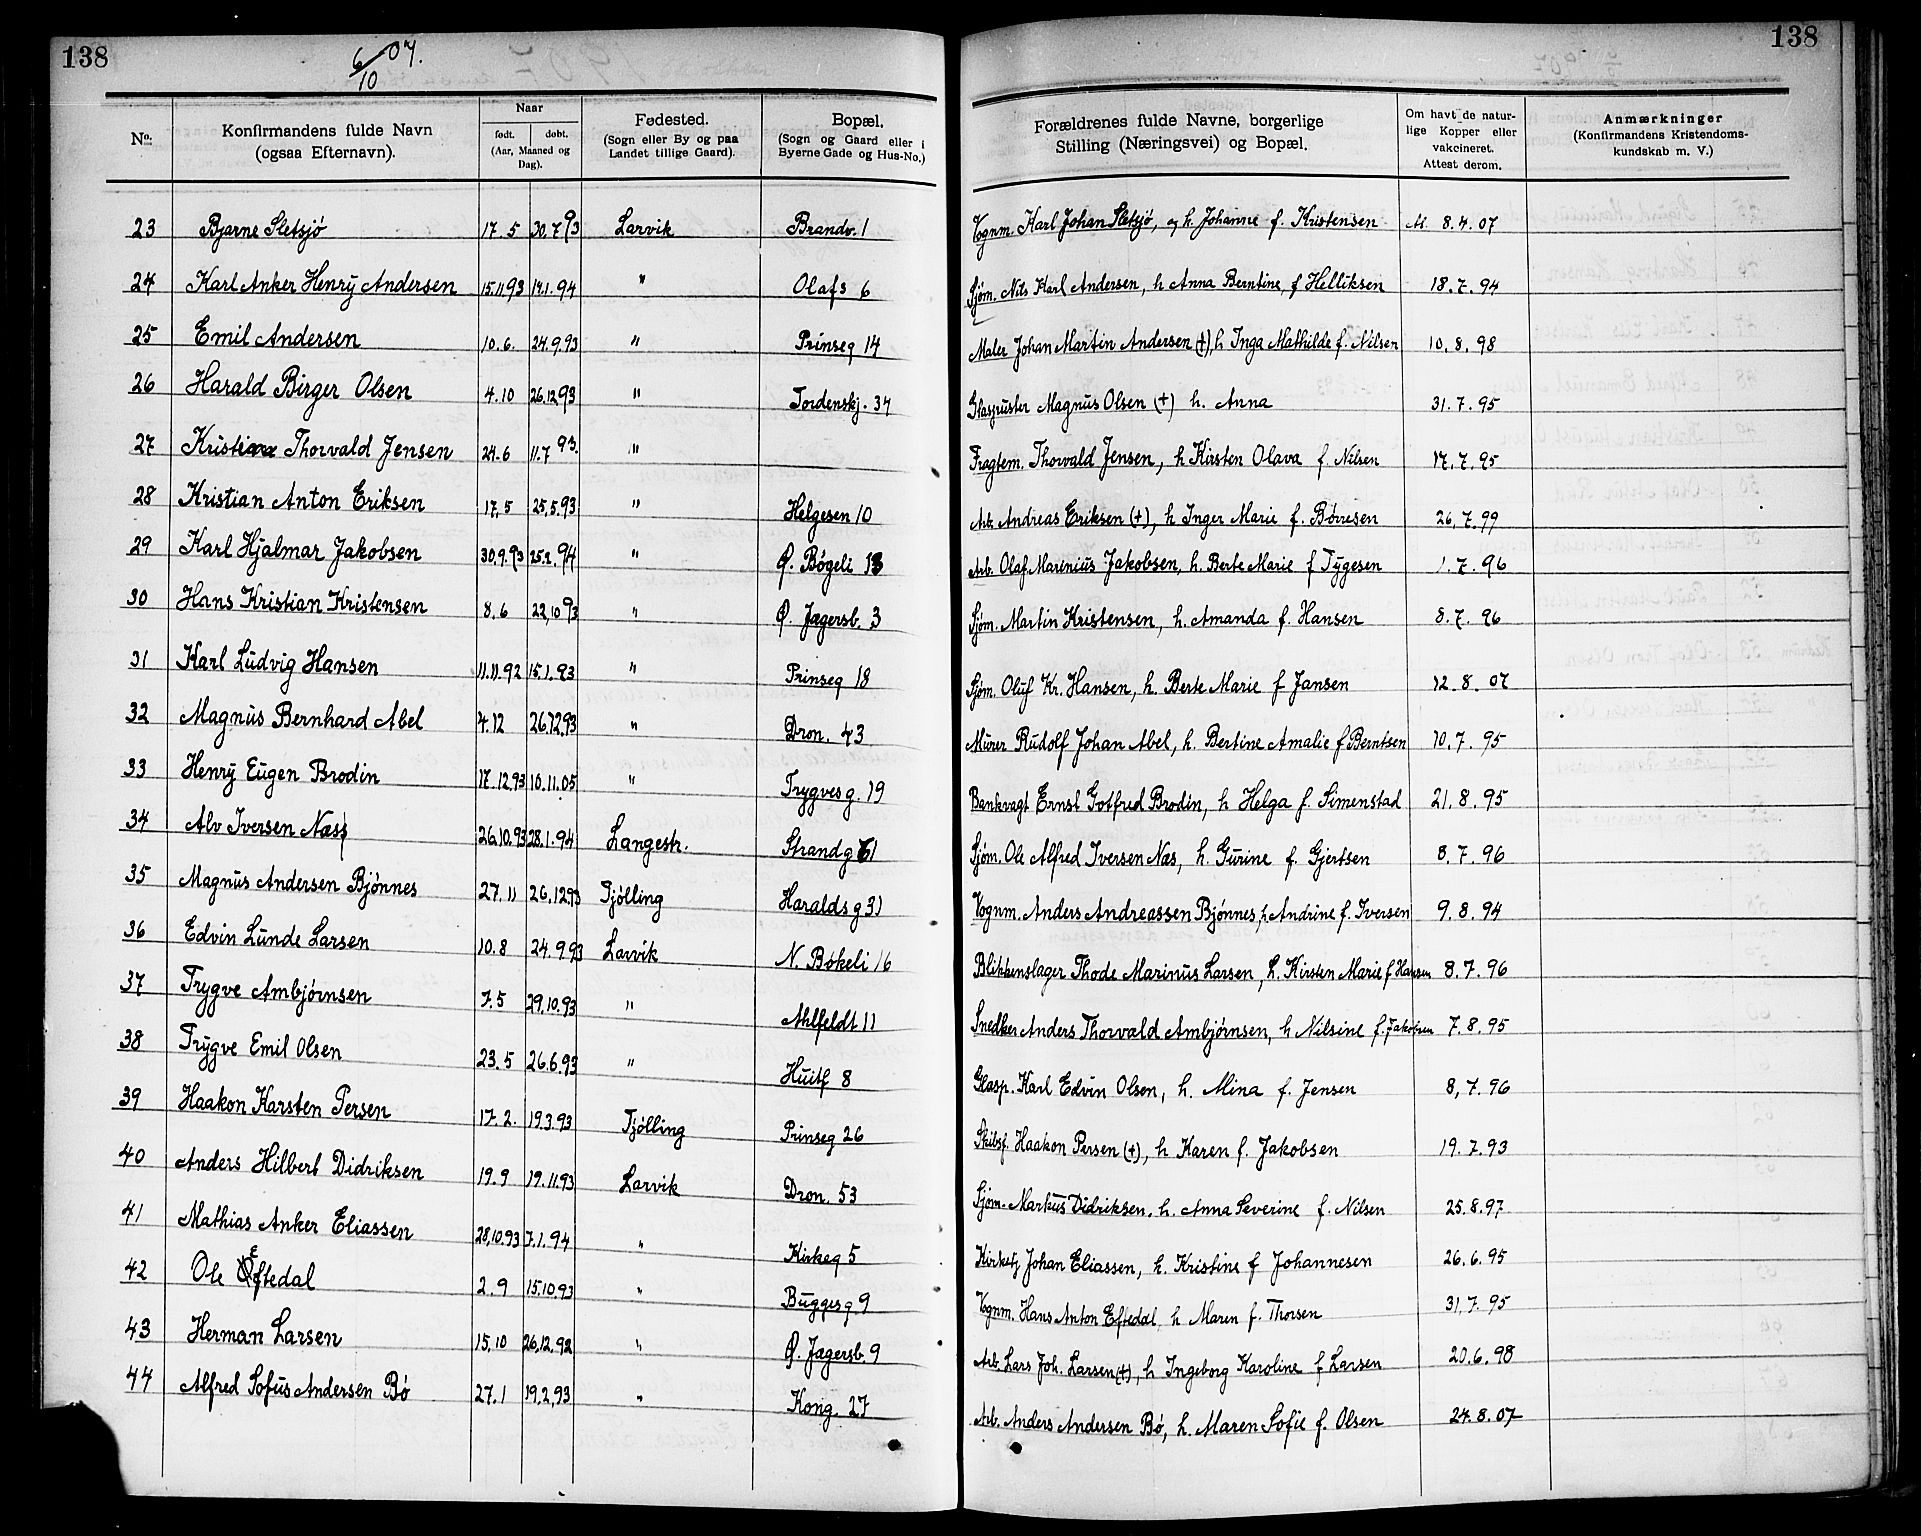 138
6/10 07.
138
No.
Konfirmandens fulde Navn
(ogsaa Efternavn).
Naar
født. døbt.
(Aar, Maaned og
Dag).
Fødested.
(Sogn eller By og paa
Landet tillige Gaard).
Bopæl.
(Sogn og Gaard eller i
Byerne Gade og Hus-No.)
Forældrenes fulde Navne, borgerlige
Stilling (Næringsvei) og Bopæl.
Om havt de natur-
lige Kopper eller
vakcineret.
Attest derom.
Anmærkninger
(Konfirmandens Kristendoms-
kundskab m. V.)
23 Bjarne Sletsjö 17.5 30.7 93 Larvik Brandv. 1 Vognm. Karl Johan Sletsjö, og h. Johanne f. Kristensen 8.4.07
24 Karl Anker Henry Andersen 15.11.93 14.1.94 " Olafs 6 Sjøm. Nils Karl Andersen, h Anna Berntine, f Helliksen 18.7.94
25 Emil Andersen 10.6. 24.9.93 " Prinseg 14 Maler Johan Martin Andersen (+), h Inga Mathilde f. Nilsen 10.8.98
26 Harald Birger Olsen 4.10 26.12 93 " Tordenskj. 34 Glaspuster Magnus Olsen (+) h. Anna 31.7.95
27 Thorvald Jensen 24.6 11.7 93. " Fragtem. Thorvald Jensen, h Kirsten Olava f Nilsen 17.7.95
28 Kristian Anton Eriksen 17.5 25.5.93 " Helgesen 10 Arb. Andreas Eriksen (+), h Inger Marie f. Børresen 26.7.99
29 Karl Hjalmar Jakobsen 30.9.93 25.2.94 " Ø. Bøgeli 13 Arb. Olaf Marinius Jakobsen, h. Berte Marie f Tygesen 1.7.96
30 Hans Kristian Kristensen 8.6 22.10 93 " Ø. Jægersb. 3 Sjøm. Martin Kristensen, h. Amanda f. Hansen 8.7.96
31 Karl Ludvig Hansen 11.11.92 15.1.93 " Prinseg 18 Sjøm. Oluf Kr. Hansen, h. Berte Marie f Jansen 12.8.07
32 Magnus Bernhard Abel 4.12 26.12.93 " Dron. 43 Murer Rudolf Johan Abel, h. Bertine Amalie f Berntsen 10.7.95
33 Henry Eugen Brodin 17.12.93 10.11.05 " Trygvesg. 19 Bankvagt Ernst Gotfred Brodin, h Helga f. Simenstad 21.8.95
34 Alv Iversen Næss 26.10.93 28.1.94 Langestr. Strandg 61 Sjøm. Ole Alfred Iversen Næs, h. Gurine f. Gjertsen 8.7.96
35 Magnus Andersen Bjønnes 27.11 26.12.93 Tjølling Haraldsg 31 Vognm. Anders Andreassen Bjønnes, h Andrine f. Iversen 9.8.94
36 Edvin Lunde Larsen 10.8 24.9 93 Larvik N. Bøkeli 16 Blikkenslager Thode Marinus Larsen, h. Kirsten Marie f Hansen 8.7.96
37 Trygve Ambjørnsen 7.5 29.10.93 " Ahlfeldt 11 Snedker Anders Thorvald Ambjørnsen, h Nilsine f. Jakobsen 7.8.95
38 Trygve Emil Olsen 23.5 26.6.93 " Huitf 8 Glasp. Karl Edvin Olsen, h. Mina f. Jensen 8.7.96
39 Haakon Karsten Persen 17.2. 19.3.93 Tjølling Prinseg 26 Skibsf. Haakon Persen (+), h Karen f. Jakobsen 19.7.93
40 Anders Hilbert Didriksen 19.9 19.11.93 Larvik Dron. 53 Sjøm. Markus Didriksen, h. Anna Severine f. Nilsen 25.8.97
41 Mathias Anker Eliassen 28.10.93 7.1.94 " Kirkeg 5 Kirketj Johan Eliassen, h. Kristine f Johannesen 26.6.95
42 Ole Eftedal 2.9 15.10.93 " Buggesg 9 Vognm. Hans Anton Eftedal, h Maren f. Thorsen 31.7.95
43 Herman Larsen 15.10 26.12.92 " Ø. Jægersb. 9 Arb. Lars Joh. Larsen (+), h Ingeborg Karoline f Larsen 20.6.98
44 Alfred Sofus Andersen Bö 27.1 19.2.93 " Kong. 27 Arb. Anders Andersen Bö, h. Maren Sofie f. Olsen 24.8.07